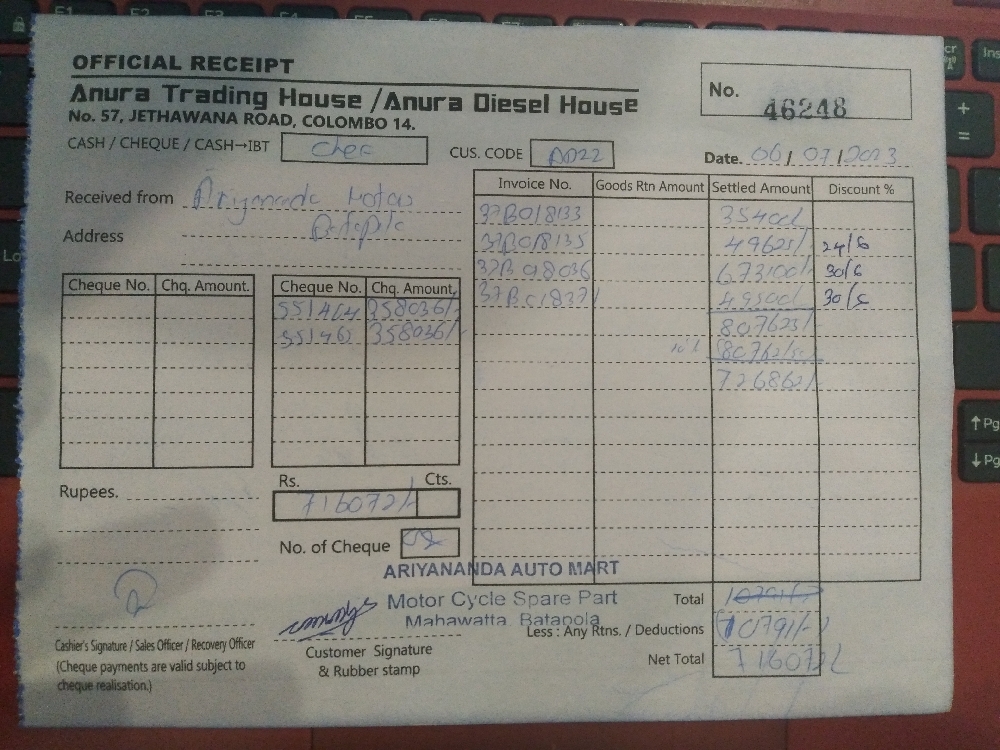 OFFICIAL RECEIPT
Anura Trading House /Anura Diesel House
No. 57, JETHAWANA ROAD, COLOMBO 14.
No. 46248
CASH / CHEQUE / CASH→IBT
CUS. CODE AD22
Date. 06/07/2023
Received from
Address
Invoice No. Goods Rtn Amount Settled Amount Discount %
37B018133 35400/
37B018135 49625/- 24/6
37B018036 673100/- 30/6
49500/
807625/
80762/50
726862/
Cheque No. Chq. Amount. Cheque No. Chq. Amount.
551464 358036/-
358036/-
Rupees.
Rs. Cts.
716072/-
No. of Cheque 02
ARIYANANDA AUTO MART
Motor Cycle Spare Part
Mahawatta Batapola
Cashier's Signature / Sales Officer / Recovery Officer
(Cheque payments are valid subject to
cheque realisation.)
Customer Signature
& Rubber stamp
Total
Less : Any Rtns. / Deductions (10791/-)
Net Total 716072/